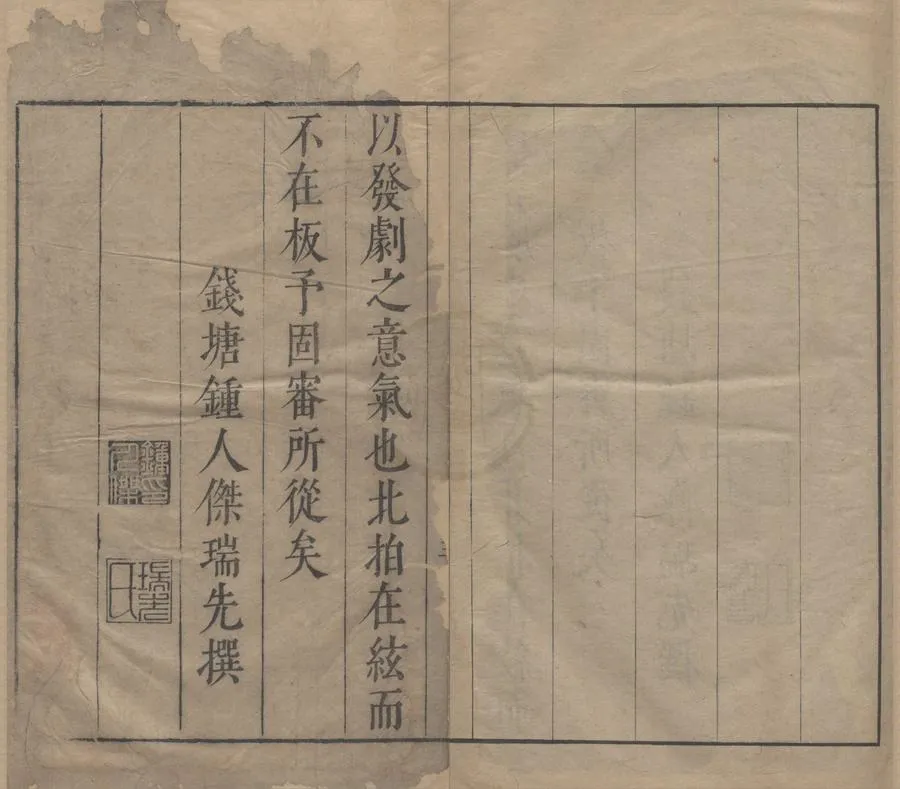 以發劇之意氣也北拍在絃而
不在板予固審所從矣
錢塘鍾人傑瑞先撰
鍾人傑印
瑞先氏
三